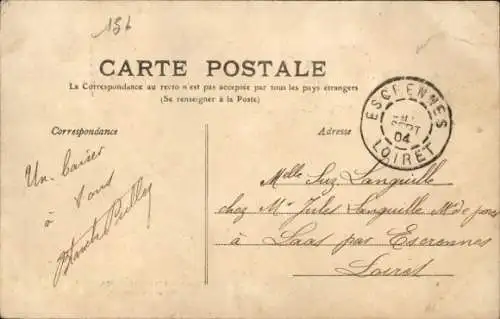 136
CARTE POSTALE
La Correspondance au recto n'est pas acceptée par tous les pays étrangers
(Se renseigner à la Poste)
Correspondance
Adresse
ESCRENNES
SEPT
04
LOIRET
Un baiser
à vous
Blanche
Melle Suz. Languille
chez Mr Jules Languille Md de porcs
à Laas par Escrennes
Loiret